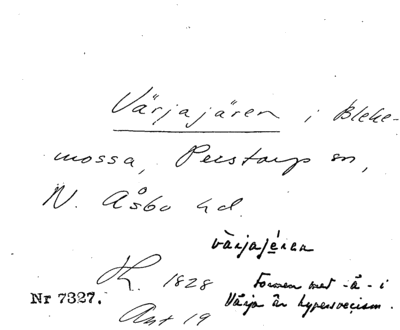 Värjajären i Bleke-
mossa, Perstorp sn,
N. Åsbo hd.
värjajéren
1828
Formen med -ä- i
Värja är hypersvecism.
Nr 7327.
19